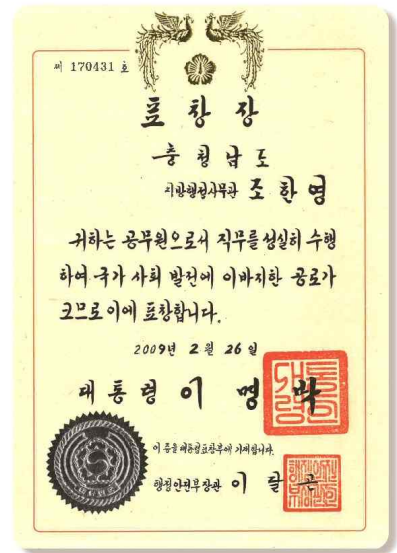 제 170431 호
표 창 장
충 청 남 도
지방행정사무관 조 한 영
귀하는 공무원으로서 직무를 성실히 수행
하여 국가 사회 발전에 이바지한 공로가
크므로 이에 표창합니다.
2009년 2 월 26 일
대 통 령 이 명 박
이 증을 대통령표창부에 기재합니다.
행정안전부장관 이 달 곤